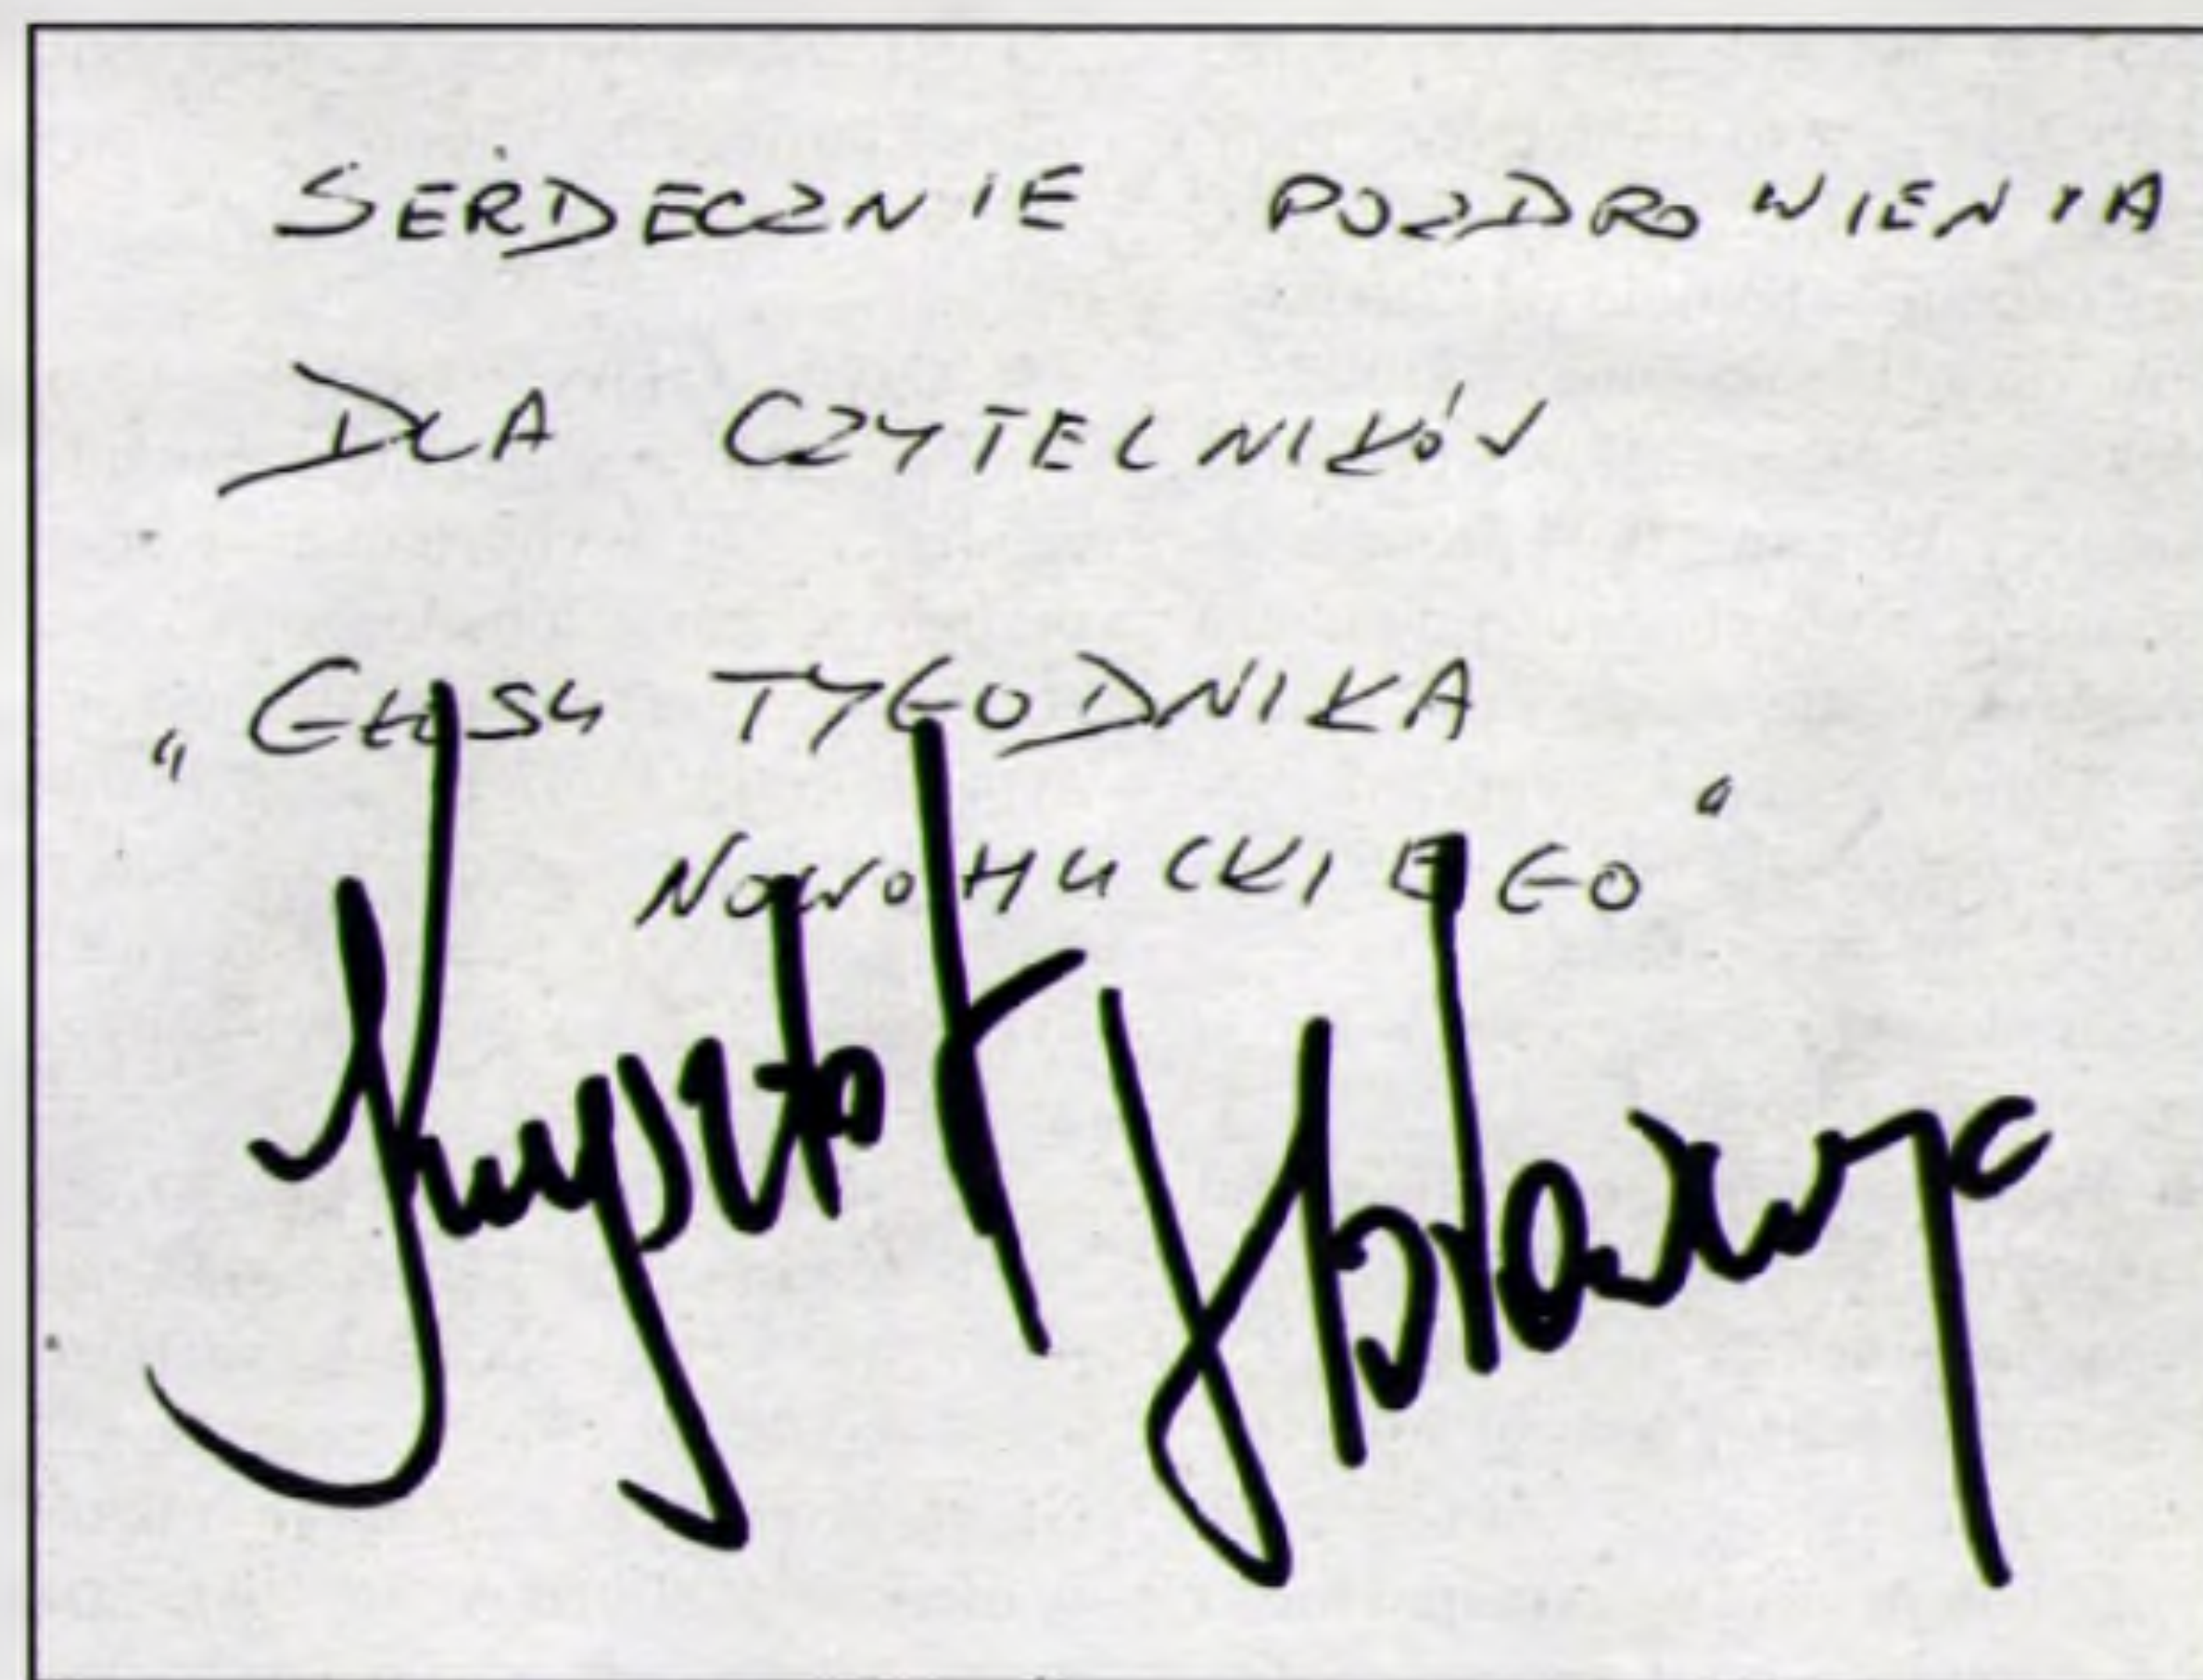 SERDECZNIE POZDROWIENIA
DLA CZYTELNIKÓW
"GŁOSU TYGODNIKA
NOWOHUCKIEGO"
Krzysztof